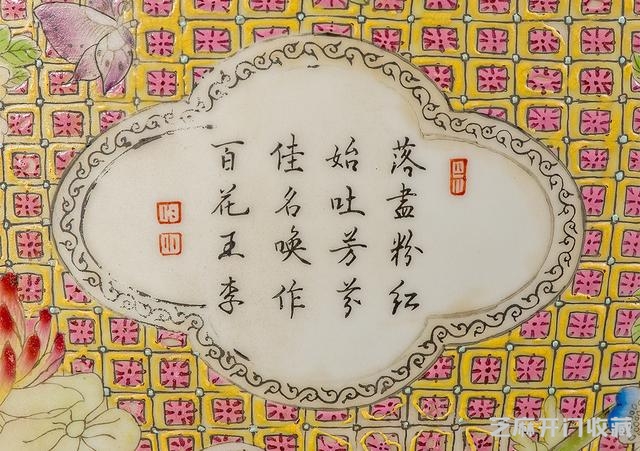 落盡粉红
始吐芳芬
佳名唤作
百花王李
芝麻开门收藏